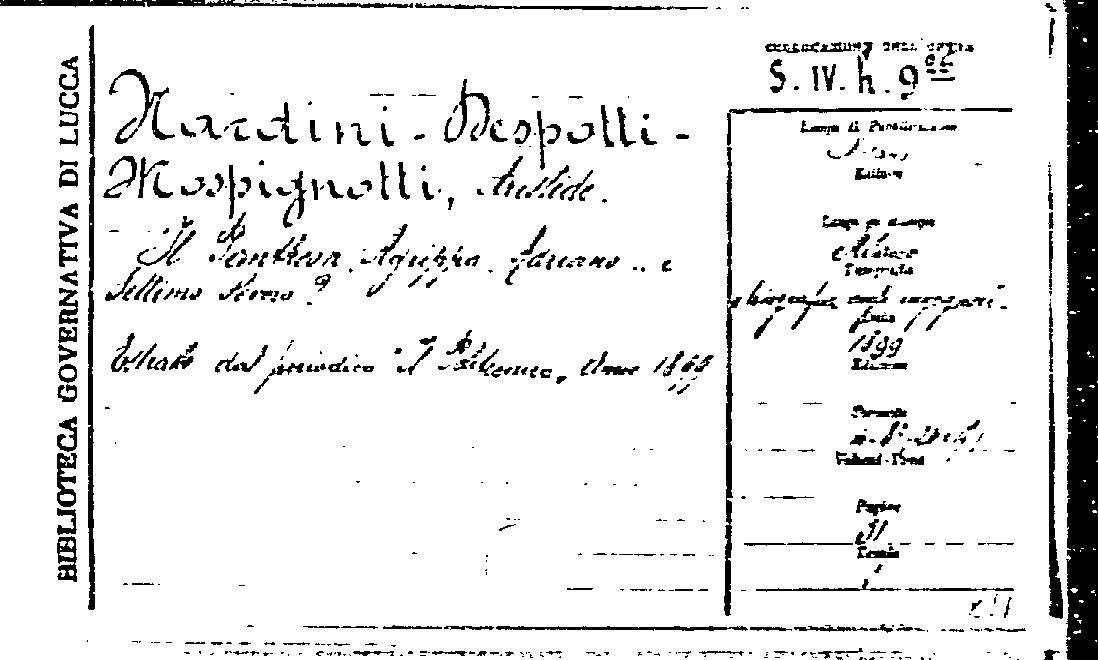 BIBLIOTECA GOVERNATIVA DI LUCCA
COLLOCAZIONE DELL'OPERA
S. IV. h. 9
Nardini - Despotti -
Mospignotti, Aristide.
Il Pantheon. Agrippa. Adriano .. e
Settimo Severo?
Estratto dal periodico "Il Politecnico, Anno 1899
Luogo di Pubblicazione
Milano
Editore
Luogo di stampa
Milano
Tipografia
Data
1899
Edizione
Formato
Volumi - Tomi
Pagine
31